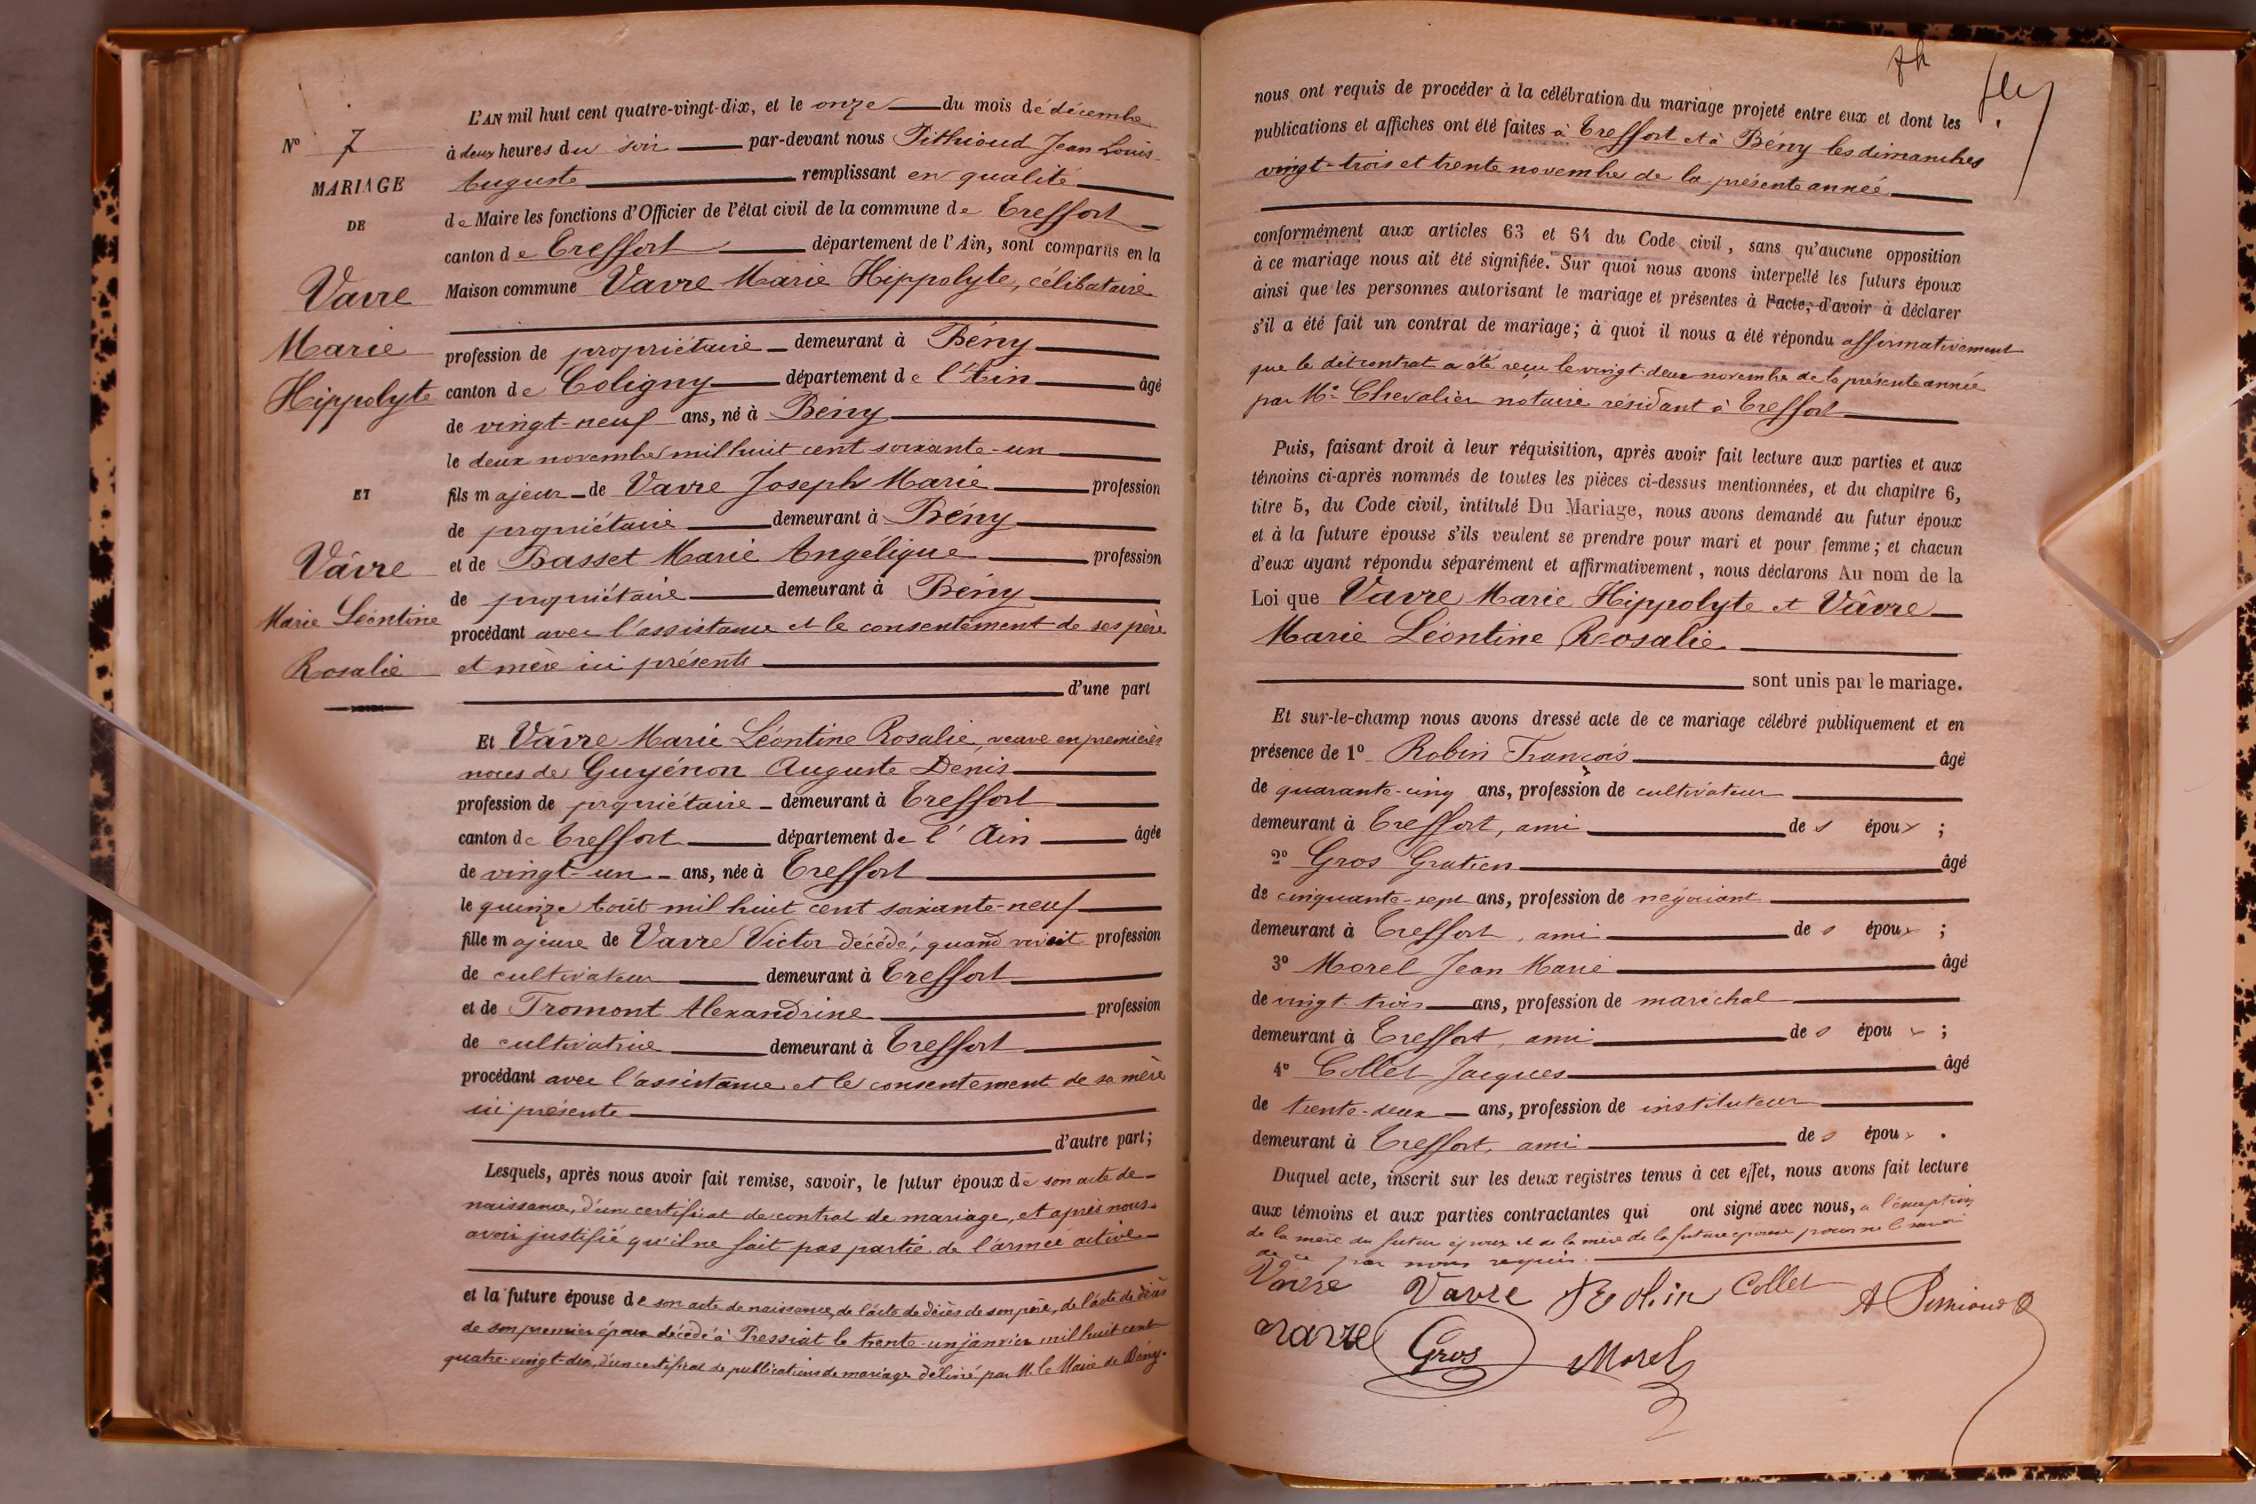 L'AN mil huit cent quatre-vingt-dix, et le onze du mois de décembre
à deux heures du soir par-devant nous Pithioud Jean Louis
Auguste remplissant en qualité
de Maire les fonctions d'Officier de l'état civil de la commune de Treffort
canton de Treffort département de l'Ain, sont comparus en la
Maison commune Vavre Marie Hippolyte, célibataire
profession de propriétaire demeurant à Bény
canton de Coligny département de l'Ain âgé
de vingt-neuf ans, né à Bény
le deux novembre mil huit cent soixante-un
fils majeur de Vavre Joseph Marie profession
de propriétaire demeurant à Bény
et de Basset Marie Angélique profession
de propriétaire demeurant à Bény
procédant avec l'assistance et le consentement de ses père
et mère ici présents
d'une part
Et Vâvre Marie Léontine Rosalie, veuve en premières
noces de Guyénon Auguste Denis
profession de propriétaire demeurant à Treffort
canton de Treffort département de l'Ain âgée
de vingt-un ans, née à Treffort
le quinze Août mil huit cent soixante-neuf
fille majeure de Vavre Victor décédé, quand vivait profession
de cultivateur demeurant à Treffort
et de Fromont Alexandrine profession
de cultivatrice demeurant à Treffort
procédant avec l'assistance et le consentement de sa mère
ici présente
d'autre part;
Lesquels, après nous avoir fait remise, savoir, le futur époux de son acte de
naissance, d'un certificat de contrat de mariage, et après nous
avoir justifié qu'il ne fait pas partie de l'armée active
et la future épouse de son acte de naissance, de l'acte de décès de son père, de l'acte de décès
de son premier époux décédé à Pressiat le trente-un janvier mil huit cent
quatre-vingt-dix, d'un certificat de publications de mariage délivré par M. le Maire de Bény.
N° 7
MARIAGE
DE
Vavre
Marie
Hippolyte
ET
Vâvre
Marie Léontine
Rosalie
nous ont requis de procéder à la célébration du mariage projeté entre eux et dont les
publications et affiches ont été faites à Treffort et à Bény les dimanches
vingt-trois et trente novembre de la présente année
conformément aux articles 63 et 64 du Code civil, sans qu'aucune opposition
à ce mariage nous ait été signifiée. Sur quoi nous avons interpellé les futurs époux
ainsi que les personnes autorisant le mariage et présentes à l'acte, d'avoir à déclarer
s'il a été fait un contrat de mariage; à quoi il nous a été répondu affirmativement
que le dit contrat a été reçu le vingt-deux novembre de la présente année
par Me Chevalier notaire résidant à Treffort
Puis, faisant droit à leur réquisition, après avoir fait lecture aux parties et aux
témoins ci-après nommés de toutes les pièces ci-dessus mentionnées, et du chapitre 6,
titre 5, du Code civil, intitulé Du Mariage, nous avons demandé au futur époux
et à la future épouse s'ils veulent se prendre pour mari et pour femme; et chacun
d'eux ayant répondu séparément et affirmativement, nous déclarons Au nom de la
Loi que Vavre Marie Hippolyte et Vâvre
Marie Léontine Rosalie
sont unis par le mariage.
Et sur-le-champ nous avons dressé acte de ce mariage célébré publiquement et en
présence de 1° Robin François âgé
de quarante-cinq ans, profession de cultivateur
demeurant à Treffort, ami des époux;
2° Gros Gratien âgé
de cinquante-sept ans, profession de négociant
demeurant à Treffort, ami des époux;
3° Morel Jean Marie âgé
de vingt-trois ans, profession de maréchal
demeurant à Treffort, ami des époux;
4° Collet Jacques âgé
de trente-deux ans, profession de instituteur
demeurant à Treffort, ami des époux.
Duquel acte, inscrit sur les deux registres tenus à cet effet, nous avons fait lecture
aux témoins et aux parties contractantes qui ont signé avec nous, à l'exception
de la mère du futur époux et de la mère de la future épouse pour ne le savoir
de ce par nous requis.
Vavre Vavre Robin Collet A Pithioud
Vavre Gros Morel